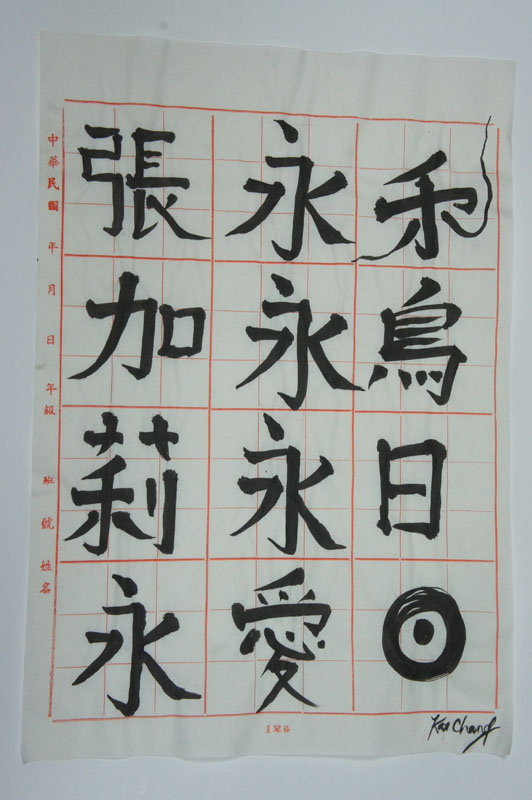 禾鳥日
永永永愛
張加莉永
中華民國 年 月 日 年級 班 號 姓名
Kat Chang